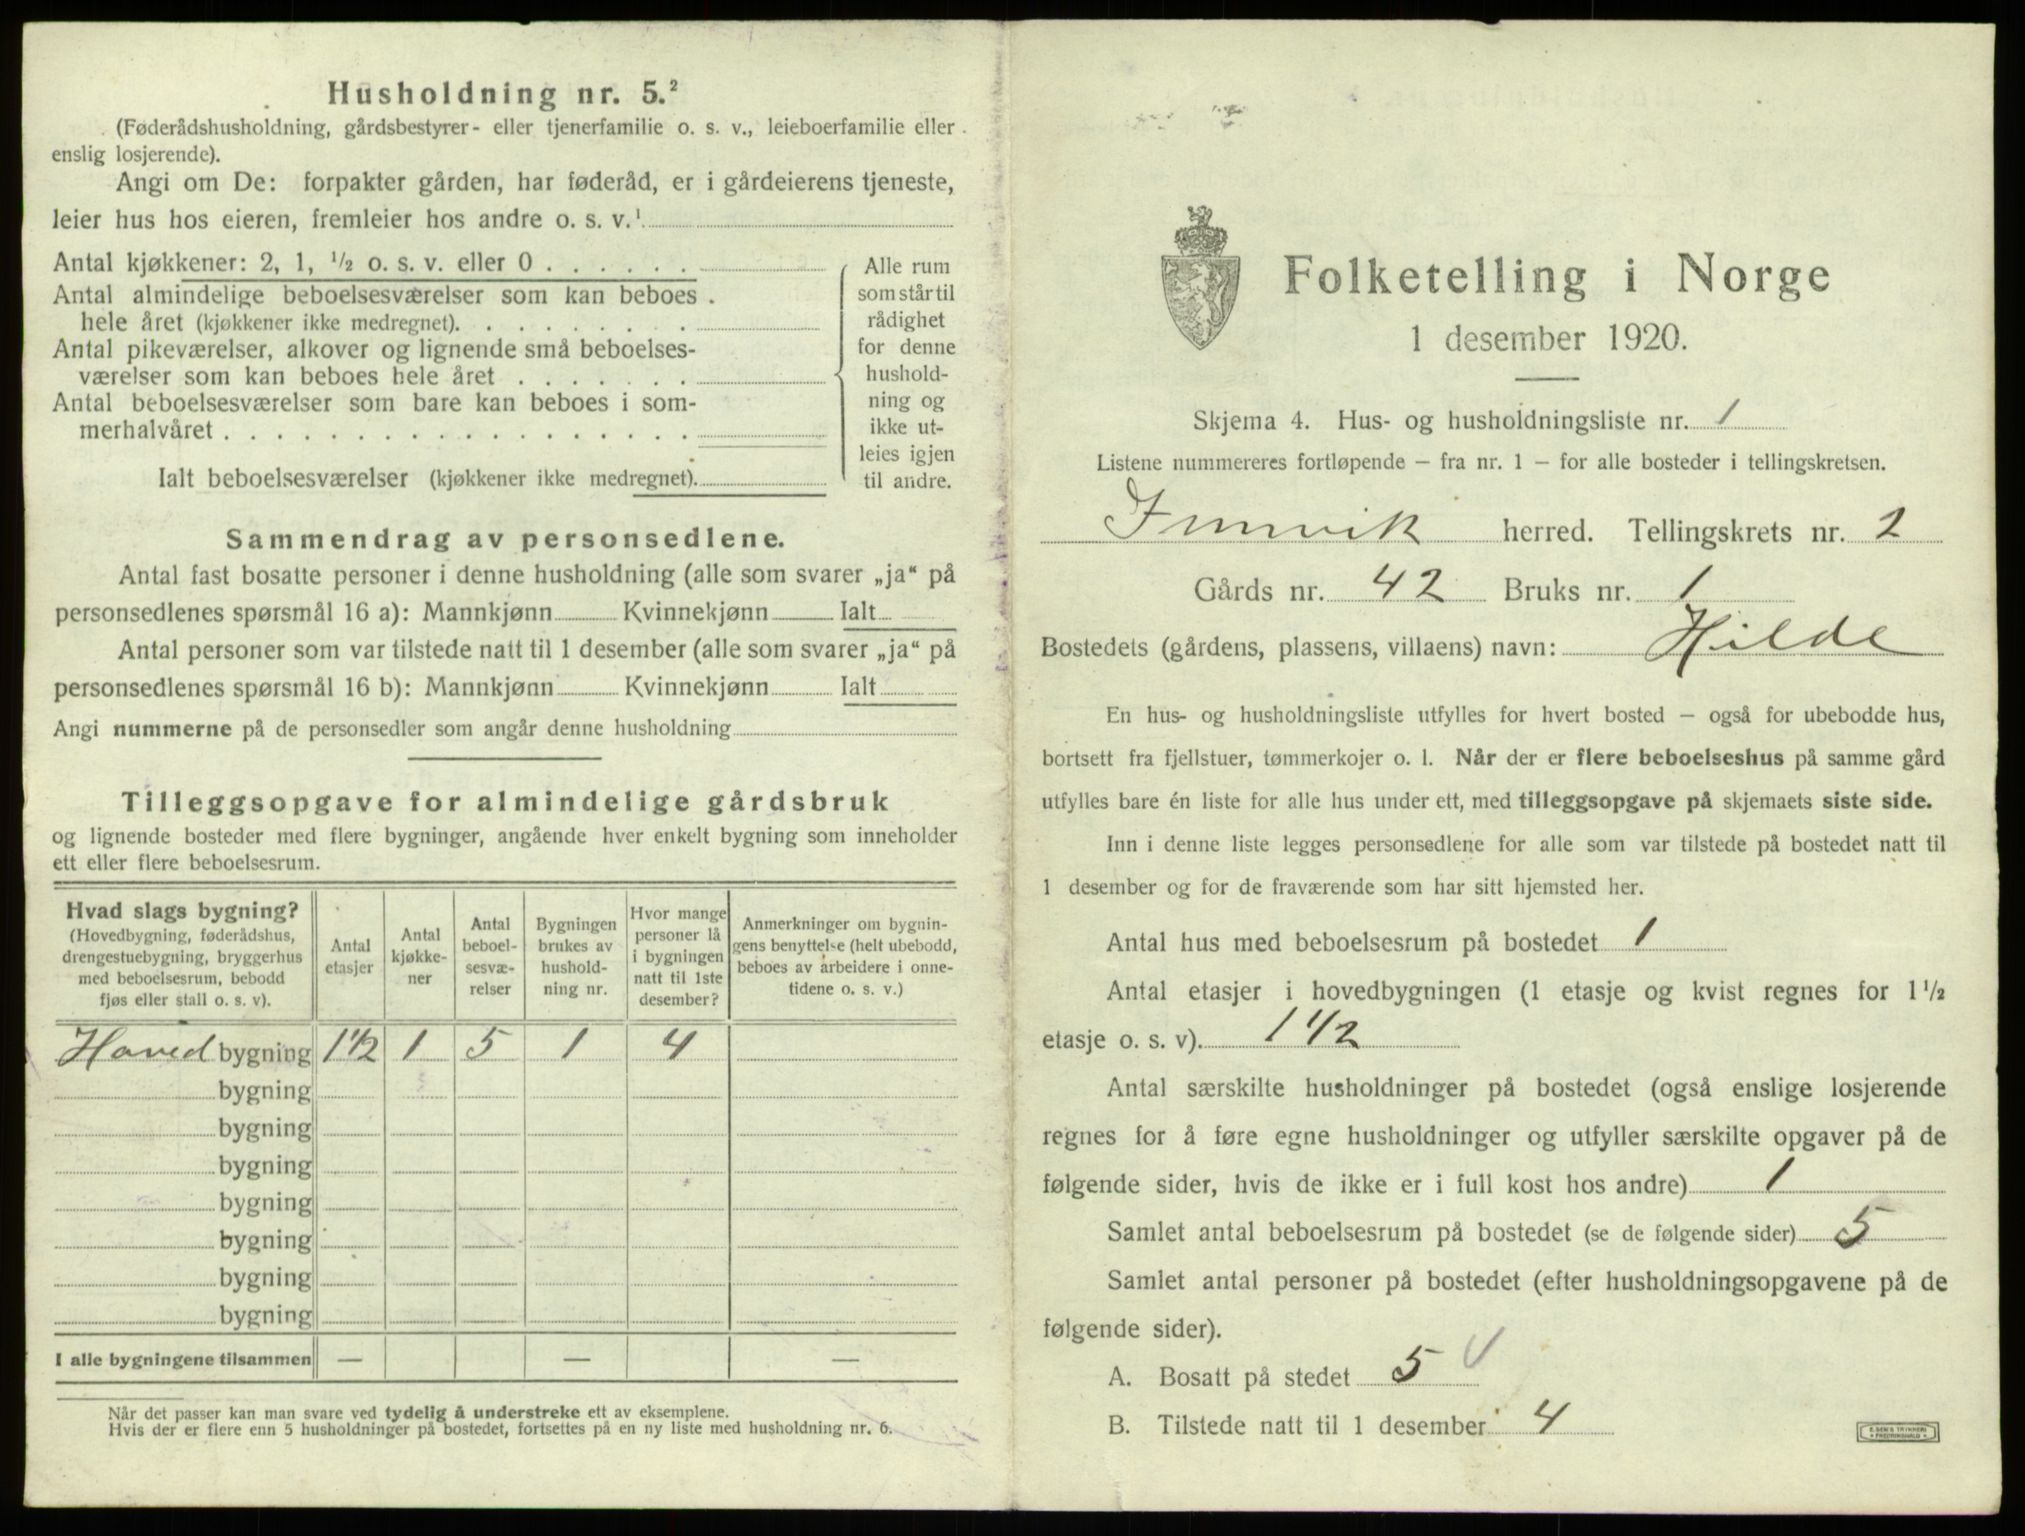 Husholdning nr. 5.²
(Føderådshusholdning, gårdsbestyrer- eller tjenerfamilie o. s. v., leieboerfamilie eller
enslig losjerende).
Angi om De: forpakter gården, har føderåd, er i gårdeierens tjeneste,
leier hus hos eieren, fremleier hos andre o. s. v.¹
Antal kjøkkener: 2, 1, ½ o. s. v. eller 0 . . . . . .
Antal almindelige beboelsesværelser som kan beboes
hele året (kjøkkener ikke medregnet). . . . . . . . .
Antal pikeværelser, alkover og lignende små beboelses-
værelser som kan beboes hele året . . . . . . .
Antal beboelsesværelser som bare kan beboes i som-
merhalvåret . . . . . . . . . . . . . . . . . .
Ialt beboelsesværelser (kjøkkener ikke medregnet).
Alle rum
som står til
rådighet
for denne
hushold-
ning og
ikke ut-
leies igjen
til andre.
Sammendrag av personsedlene.
Antal fast bosatte personer i denne husholdning (alle som svarer „ja“ på
personsedlenes spørsmål 16 a): Mannkjønn Kvinnekjønn Ialt
Antal personer som var tilstede natt til 1 desember (alle som svarer „ja“ på
personsedlenes spørsmål 16 b): Mannkjønn Kvinnekjønn Ialt
Angi nummerne på de personsedler som angår denne husholdning
Tilleggsopgave for almindelige gårdsbruk
og lignende bosteder med flere bygninger, angående hver enkelt bygning som inneholder
ett eller flere beboelsesrum.
Hvad slags bygning?
(Hovedbygning, føderådshus,
drengestuebygning, bryggerhus
med beboelsesrum, bebodd
fjøs eller stall o. s. v).
Antal
etasjer
Antal
kjøkke-
ner
Antal
beboel-
sesvæ-
relser
Bygningen
brukes av
hushold-
ning nr.
Hvor mange
personer lå
i bygningen
natt til 1ste
desember?
Anmerkninger om bygnin-
gens benyttelse (helt ubebodd,
beboes av arbeidere i onne-
tidene o. s. v.)
Hoved bygning 1½ 1 5 1 4
bygning
bygning
bygning
bygning
bygning
bygning
bygning
I alle bygningene tilsammen — — —
Når det passer kan man svare ved tydelig å understreke ett av eksemplene.
Hvis der er flere enn 5 husholdninger på bostedet, fortsettes på en ny liste med husholdning nr. 6.
Folketelling i Norge
1 desember 1920.
Skjema 4. Hus- og husholdningsliste nr. 1
Listene nummereres fortløpende — fra nr. 1 — for alle bosteder i tellingskretsen.
Innvik herred. Tellingskrets nr. 2
Gårds nr. 42 Bruks nr. 1
Bostedets (gårdens, plassens, villaens) navn: Hilde
En hus- og husholdningsliste utfylles for hvert bosted — også for ubebodde hus,
bortsett fra fjellstuer, tømmerkojer o. l. Når der er flere beboelseshus på samme gård
utfylles bare én liste for alle hus under ett, med tilleggsopgave på skjemaets siste side.
Inn i denne liste legges personsedlene for alle som var tilstede på bostedet natt til
1 desember og for de fraværende som har sitt hjemsted her.
Antal hus med beboelsesrum på bostedet 1
Antal etasjer i hovedbygningen (1 etasje og kvist regnes for 1½
etasje o. s. v). 1½
Antal særskilte husholdninger på bostedet (også enslige losjerende
regnes for å føre egne husholdninger og utfyller særskilte opgaver på de
følgende sider, hvis de ikke er i full kost hos andre) 1
Samlet antal beboelsesrum på bostedet (se de følgende sider) 5
Samlet antal personer på bostedet (efter husholdningsopgavene på de
følgende sider).
A. Bosatt på stedet 5
B. Tilstede natt til 1 desember 4